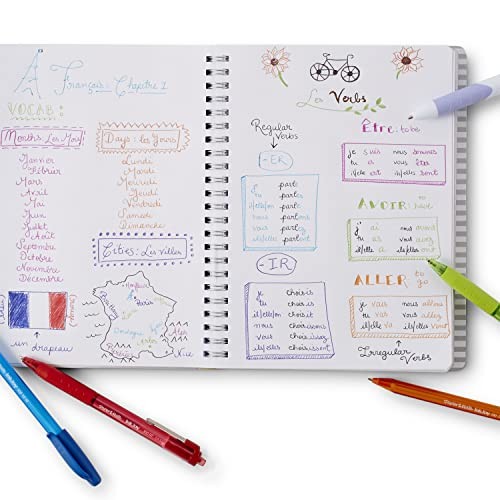 Français: Chapitre 1
VOCAB:
Months: Les Mois
Janvier
Février
Mars
Avril
Mai
Juin
Juillet
Août
Septembre
Octobre
Novembre
Décembre
un drapeau
Days: les Jours
Lundi
Mardi
Mercredi
Jeudi
Vendredi
Samedi
Dimanche
Cities: Les Villes
Paris
Nice
Les Verbs
Regular Verbs
-ER
je parle
tu parles
il/elle/on parle
nous parlons
vous parlez
ils/elles parlent
-IR
je choisis
tu choisis
il/elle/on choisit
nous choisissons
vous choisissez
ils/elles choisissent
Être: to be
je suis nous sommes
tu es vous êtes
il/elle est ils/elles sont
AVOIR: to have
j' ai nous avons
tu as vous avez
il/elle a ils/elles ont
ALLER to go
je vais nous allons
tu vas vous allez
il/elle va ils/elles vont
Irregular Verbs